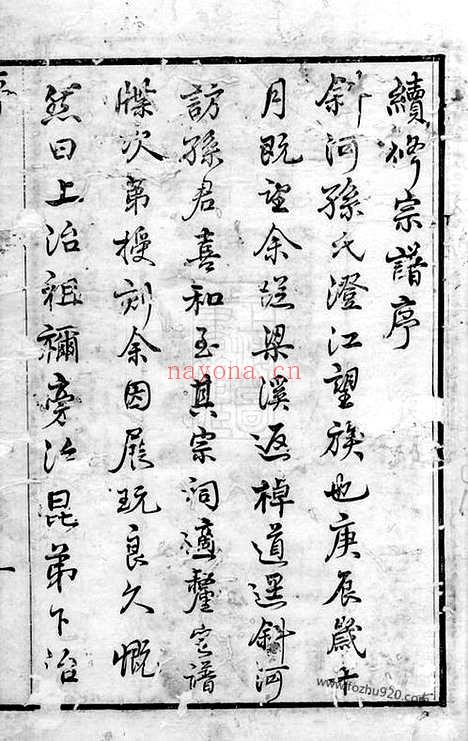 續修宗譜序
斜河孫氏澄江望族也庚辰歲十
月既望余從梁溪返棹道邅斜河
訪孫君喜和至其宗祠適釐定譜
牒次第授刻余因展玩良久慨
然曰上治祖禰旁治昆弟下治
序
一
nayona.cn
www.fozhu920.com